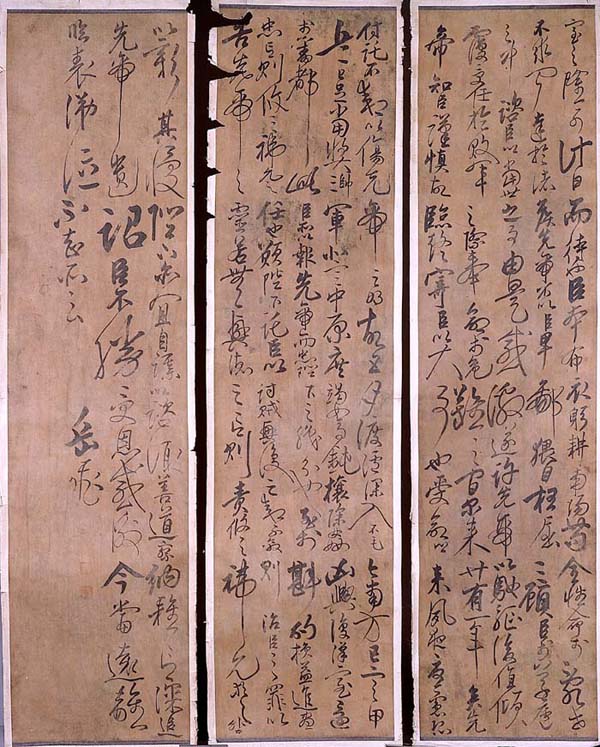 室之隆可計日而待也臣本布衣躬耕南陽苟全性命於亂世
不求聞達於諸侯先帝不以臣卑鄙猥自枉屈三顧臣於草廬
之中諮臣以當世之事由是感激遂許先帝以驅馳後值傾
覆受任於敗軍之際奉命於危難之間爾來廿有一年矣先
帝知臣謹慎故臨終寄臣以大事也受命以來夙夜憂慮恐
付託不效以傷先帝之明故五月渡瀘深入不毛今南方已定甲
兵已足當獎帥三軍北定中原庶竭駑鈍攘除姦凶興復漢室還
於舊都此臣所以報先帝而忠陛下之職分也至於斟酌損益進盡
忠言則攸之禕允之任也願陛下託臣以討賊興復之效不效則治臣之罪以
告先帝之靈若無興德之言則責攸之禕允等之咎
以彰其慢陛下亦宜自謀以諮諏善道察納雅言深追
先帝遺詔臣不勝受恩感激今當遠離
臨表涕泣不知所云
岳飛